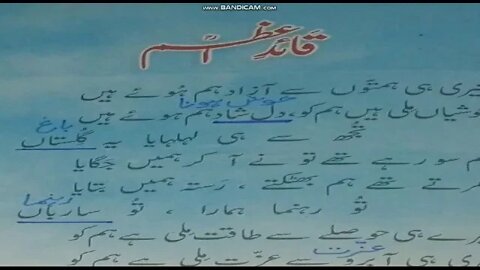 www.BANDICAM.com
قائدِ اعظم
تیری ہی ہمتوں سے آزاد ہم ہوئے ہیں
خوش ہونا
خوشیاں ملی ہیں ہم کو، دل شاد ہم ہوئے ہیں
باغ
تجھ سے ہی لہلہایا یہ گلستاں
ہم سو رہے تھے تو نے آ کر ہمیں جگایا
پھرتے تھے ہم بھٹکتے، رستہ ہمیں بتایا
رہنما
تو رہنما ہمارا، تو سارباں
تیرے ہی حوصلے سے طاقت ملی ہے ہم کو
عزت
تیری ہی آبرو سے عزت ملی ہے ہم کو